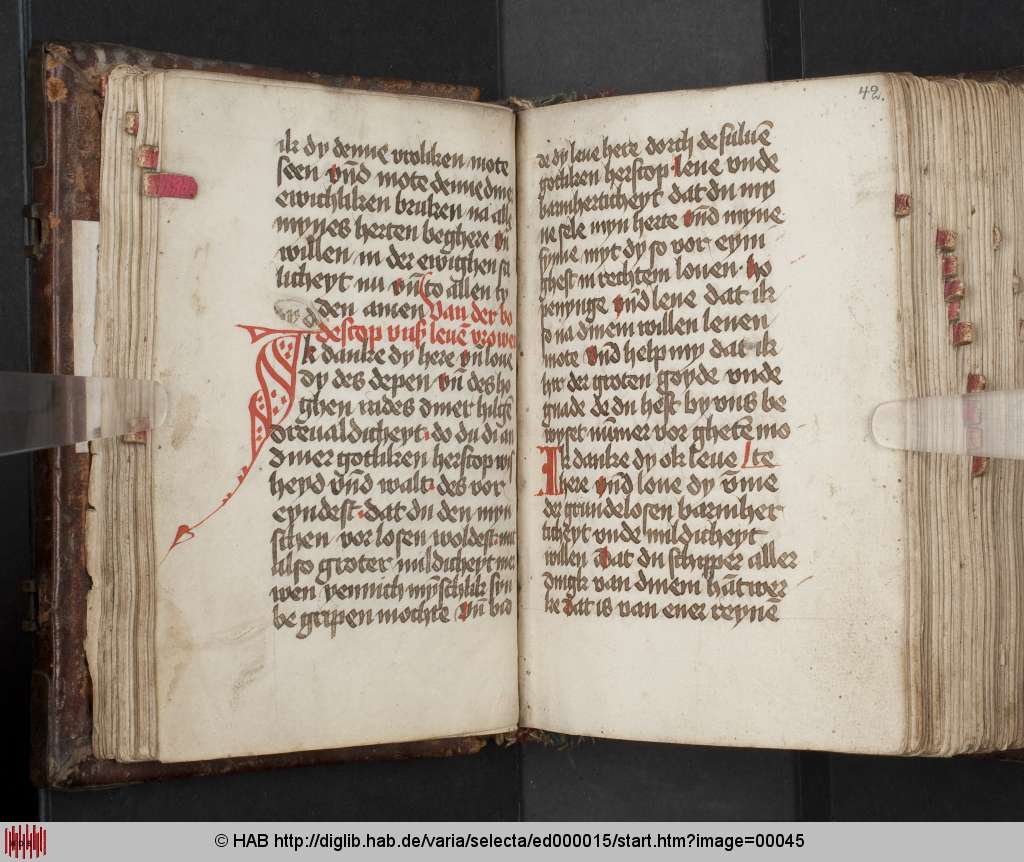 ik dy denne vroliken mote
seen vn̄d mote denne dine
ewichliken bruken na alle
mynes herten beghere vn̄
willen in der ewighen sa
licheyt nu vn̄ to allen ty
den amen Van der bo
descop vnß leuē vrowen
Ik danke dy here vn̄ loue
dy des depen vn̄ des ho
ghen rades diner hilgē
dreualdicheyt do du di an
diner gotliken herscop wis
heyd vn̄d walt des vor
eyndest dat du den myn
schen vorlosen woldest mit
also groter mildicheyt mer
wen yennich mȳschlik syn
be gripen mochte vn̄ bid
42.
de dy leue here dorch de suluē
gotliken herscop leue vnde
barmherticheyt dat du my
ne sele myn herte vn̄d myne
synne myt dy so vor eyni
ghest in rechtem louen ho
penynge vn̄d leue dat ik
so na dinem willen leuen
mote vn̄d help my dat ik
der groten goyde vnde
gnade de du hest by vns be
wyset nūmer vor ghetē mo
Ik danke dy ok leue te
here vn̄d loue dy vm̄e
der grundelosen barmher
ticheyt vnde mildicheyt
willen dat du schipper aller
dingk van dinem hātwer
ke dat is van ener reynē
© HAB http://diglib.hab.de/varia/selecta/ed000015/start.htm?image=00045